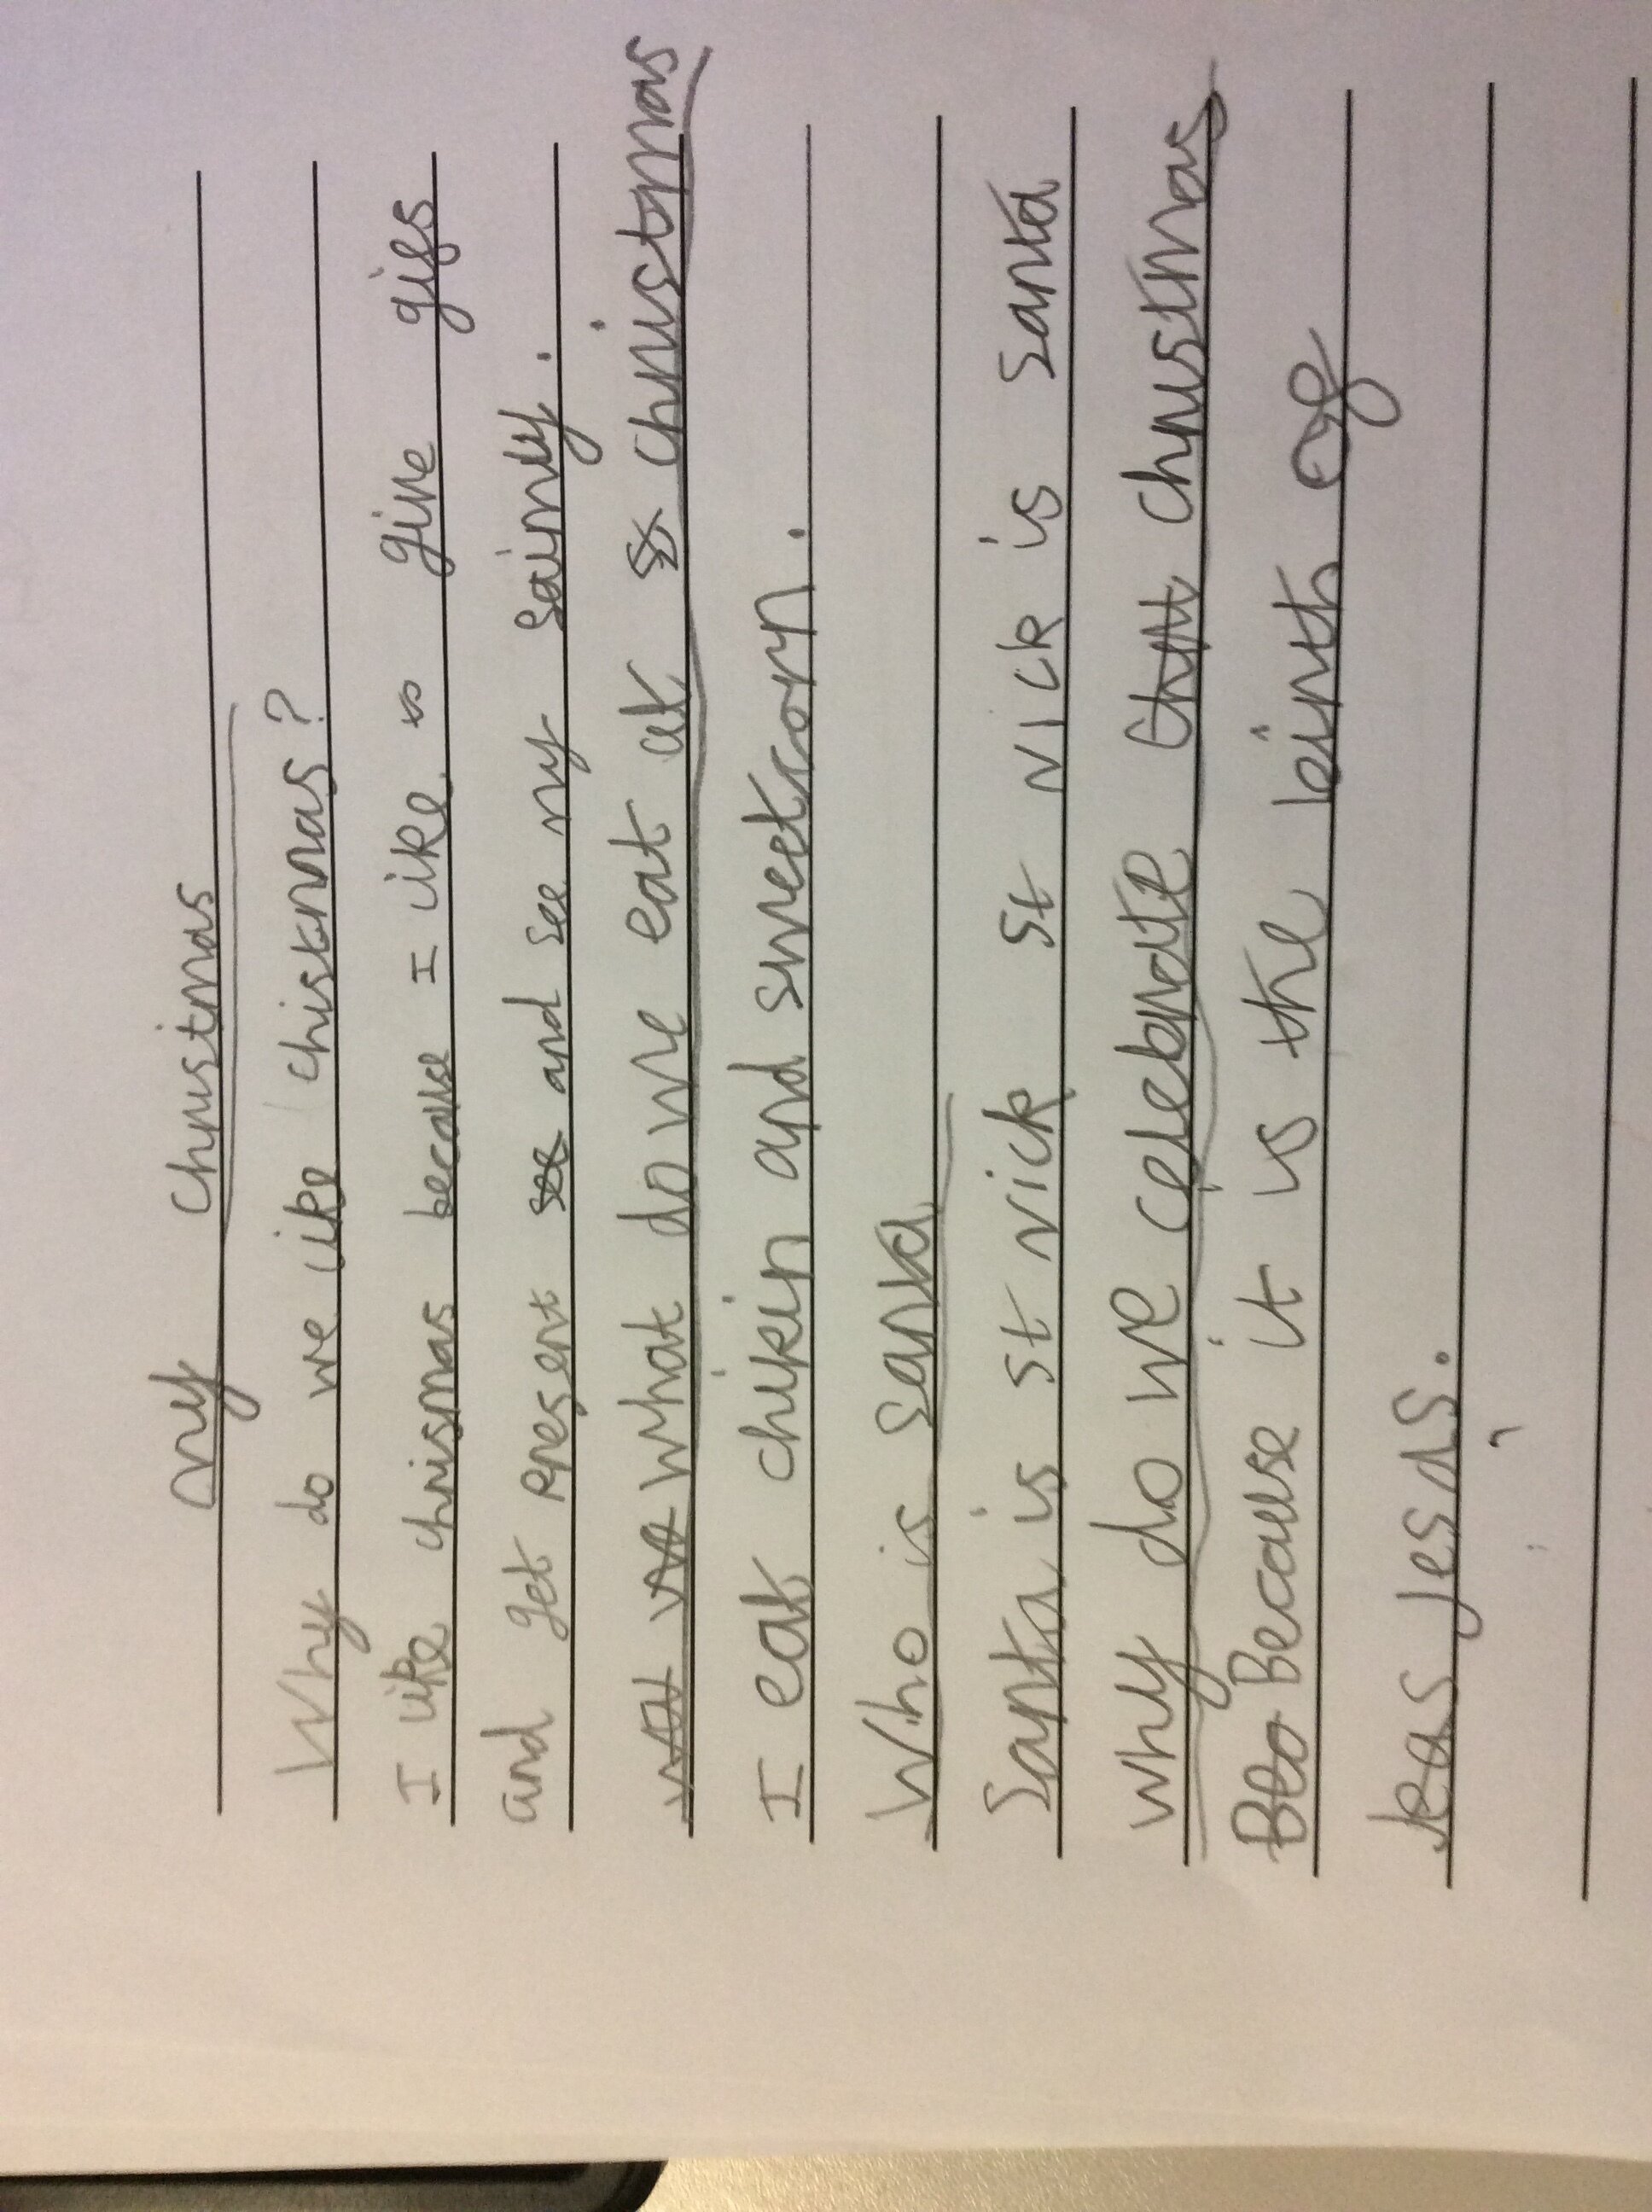 my christmas
Why do we like christmas?
I like chrismas because I like to give gifs
and get present see and see my faimly.
what do we eat at christmas
I eat chikin and sweetcorn.
Who is santa
Santa is st nick st nick is santa
why do we celebrate christmas
Because it is the birth of
jesas.